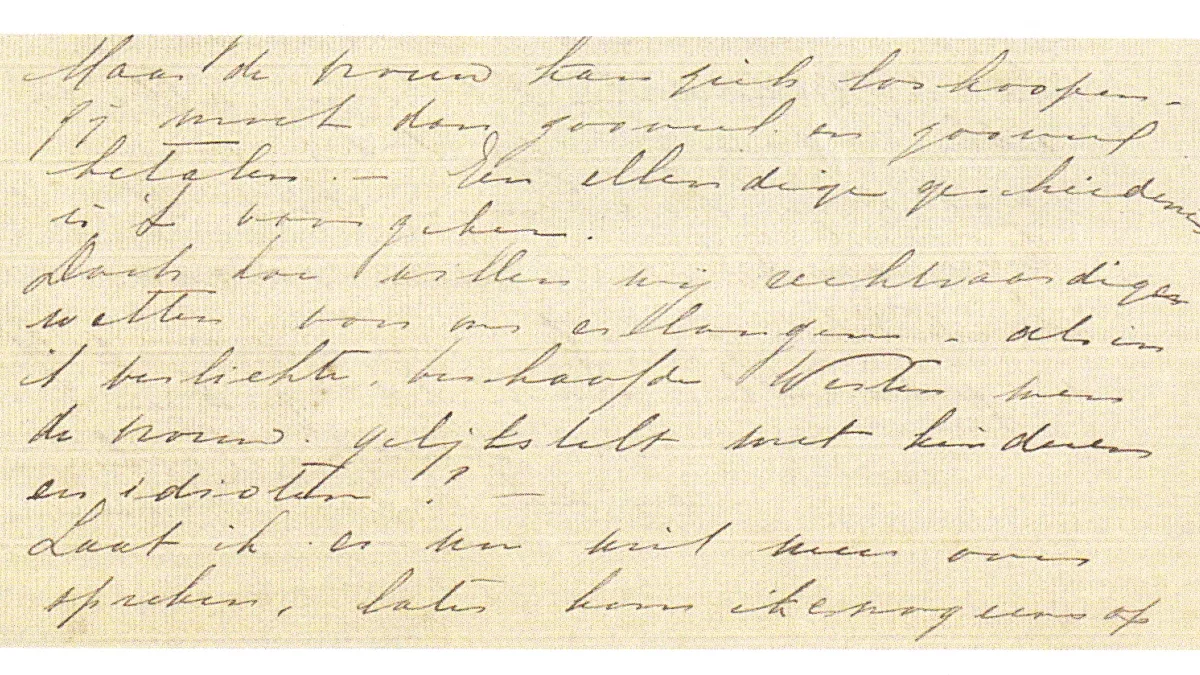 Maar de vrouw kan zich loskoopen –
zij moet dan zooveel en zooveel
betalen. – Een ellendige geschiedenis
is 't voorzeker.
Doch hoe willen wij rechtvaardigen
wetten voor ons erlangen – als in
't verlichte, beschaafde Westen men
de vrouw gelijkstelt met kinderen
en idioten? –
Laat ik er nu niet meer over
spreken, later kom ik er nog eens op